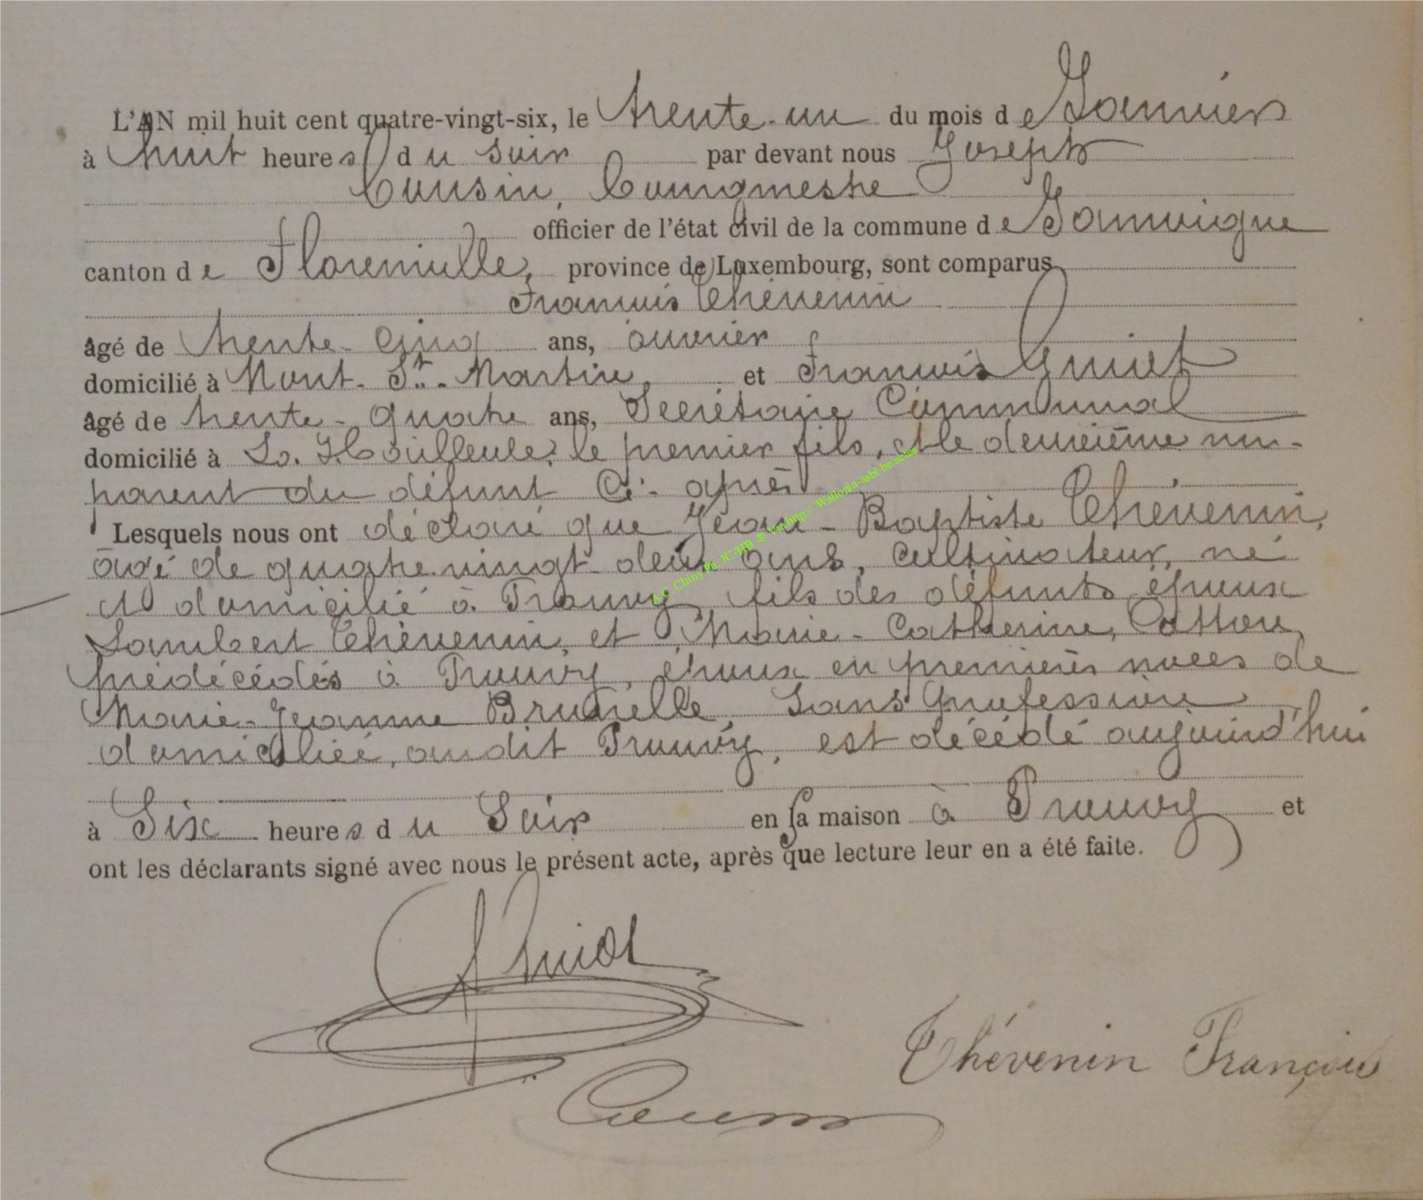 L'AN mil huit cent quatre-vingt-six, le trente-un du mois de Janvier
à huit heures du soir par devant nous Joseph
Cousin, Bourgmestre
officier de l'état civil de la commune de Jamoigne
canton de Florenville, province de Luxembourg, sont comparus
François Thévenin
âgé de trente-cinq ans, ouvrier
domicilié à Mont-St-Martin, et François Guiot
âgé de trente-quatre ans, Secrétaire Communal
domicilié à La Houilleule, le premier fils, et le deuxième non-
parent du défunt ci-après
Lesquels nous ont déclaré que Jean-Baptiste Thévenin,
âgé de quatre-vingt-deux ans, cultivateur, né
et domicilié à Prouvy, fils des défunts époux
Lambert Thévenin, et Marie-Catherine,
prédécédés à Prouvy, époux en premières noces de
Marie-Jeanne sans profession
domiciliée, audit Prouvy, est décédé aujourd'hui
à Six heures du Soir en sa maison à Prouvy et
ont les déclarants signé avec nous le présent acte, après que lecture leur en a été faite.
Guiot
Thévenin François
Cousin